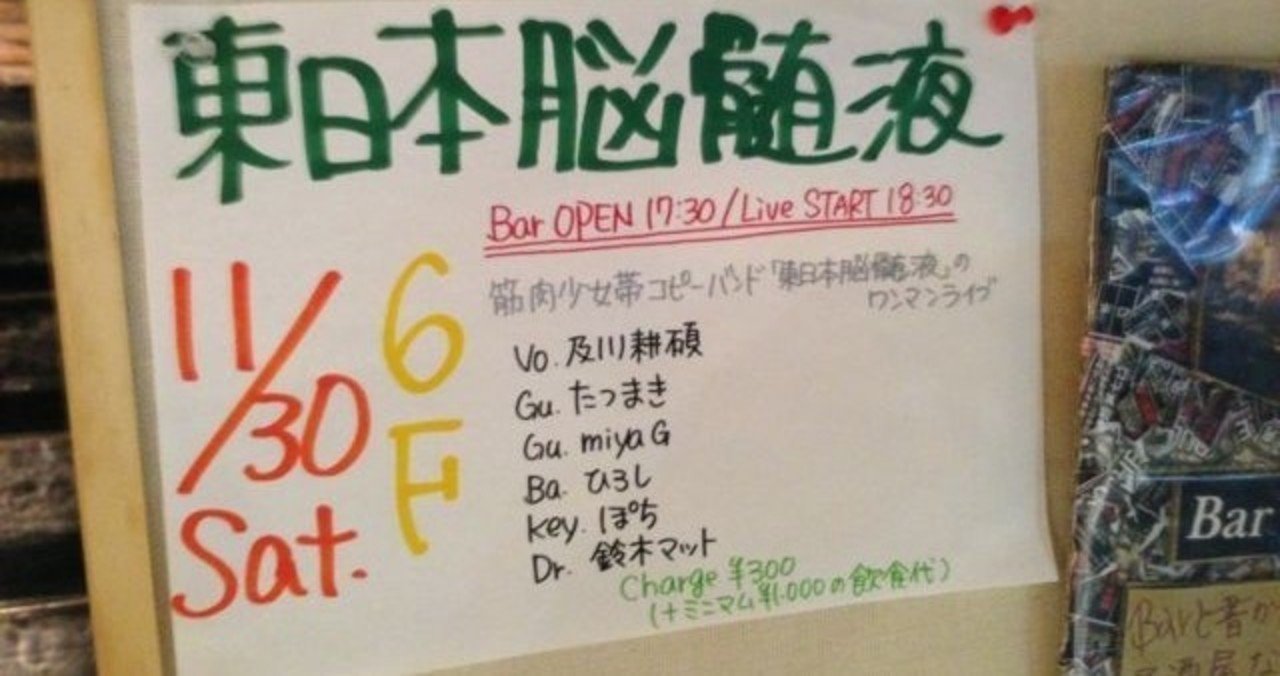 東日本脳髄液
Bar OPEN 17:30/Live START 18:30
11/30 Sat.
6F
筋肉少女帯コピーバンド「東日本脳髄液」の
ワンマンライブ
Vo. 及川耕碩
Gu. たつまき
Gu. miyaG
Ba. ひろし
Key. ぽち
Dr. 鈴木マット
Charge ¥300
(+ミニマム¥1,000の飲食代)
Bar
Barと音か